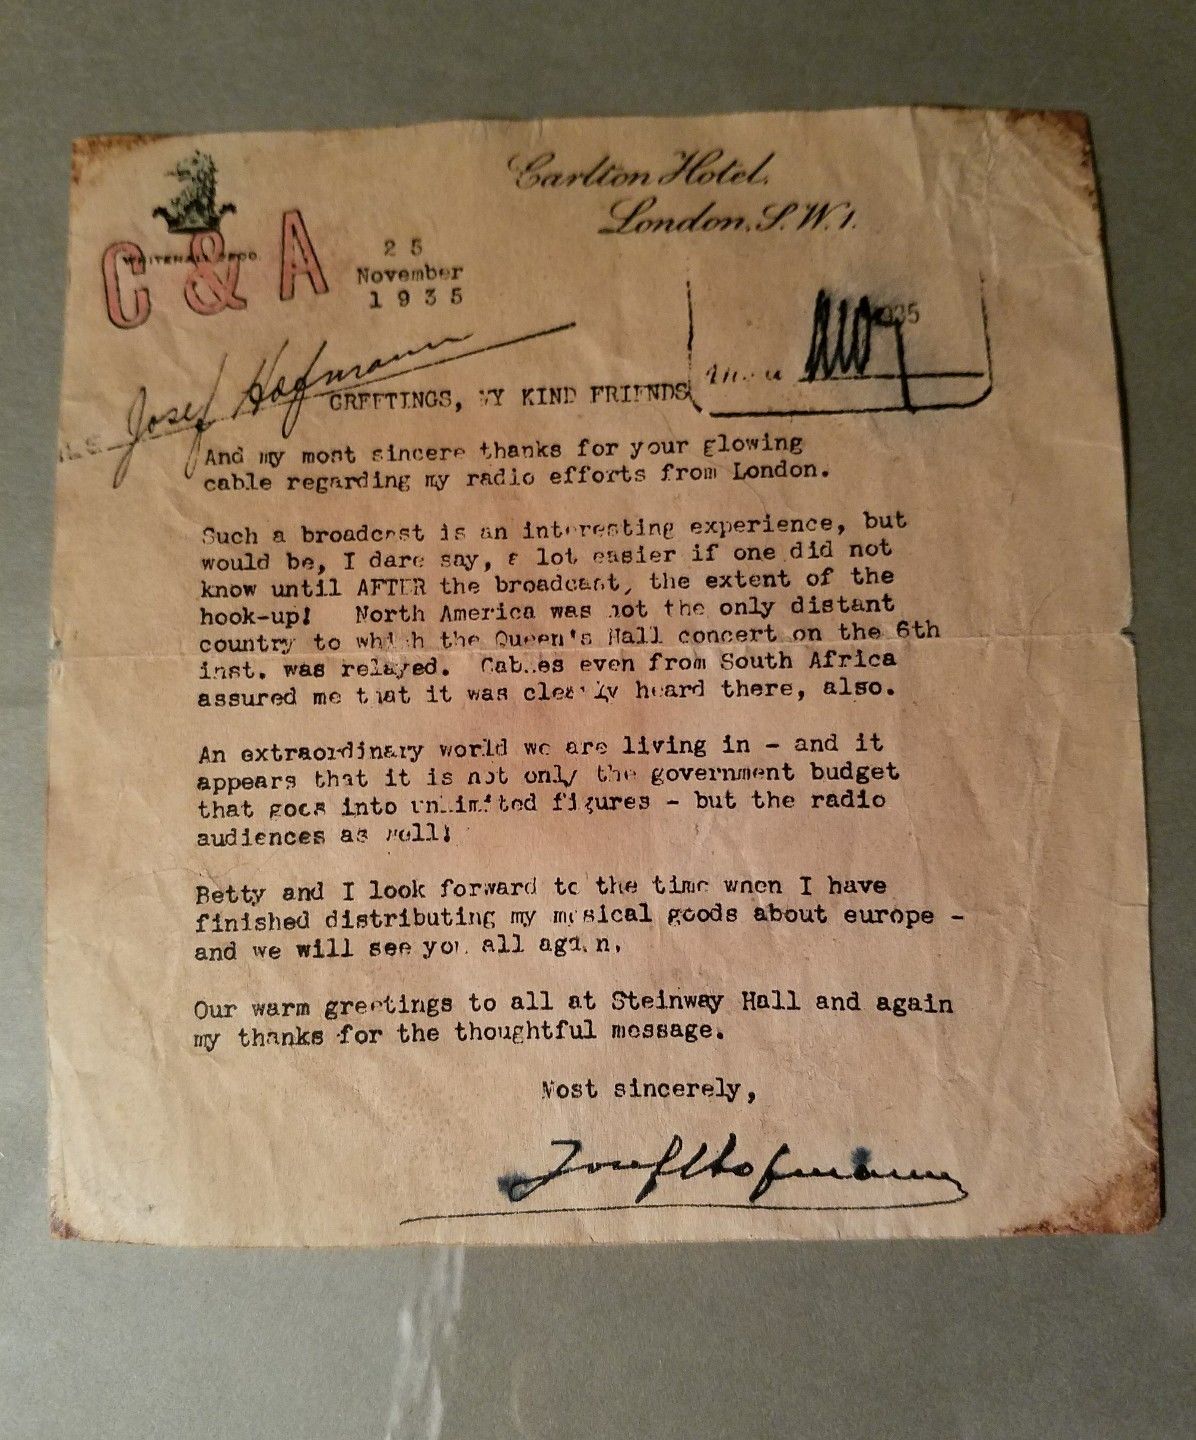 Carlton Hotel,
London, S.W.1.
C & A
25
November
1935
Josef Hofmann
GREETINGS, MY KIND FRIENDS
And my most sincere thanks for your glowing
cable regarding my radio efforts from London.
Such a broadcast is an interesting experience, but
would be, I dare say, a lot easier if one did not
know until AFTER the broadcast, the extent of the
hook-up! North America was not the only distant
country to which the Queen's Hall concert on the 6th
inst. was relayed. Cables even from South Africa
assured me that it was clearly heard there, also.
An extraordinary world we are living in - and it
appears that it is not only the government budget
that goes into unlimited figures - but the radio
audiences as well!
Betty and I look forward to the time when I have
finished distributing my musical goods about europe -
and we will see you all again.
Our warm greetings to all at Steinway Hall and again
my thanks for the thoughtful message.
Most sincerely,
Josef Hofmann